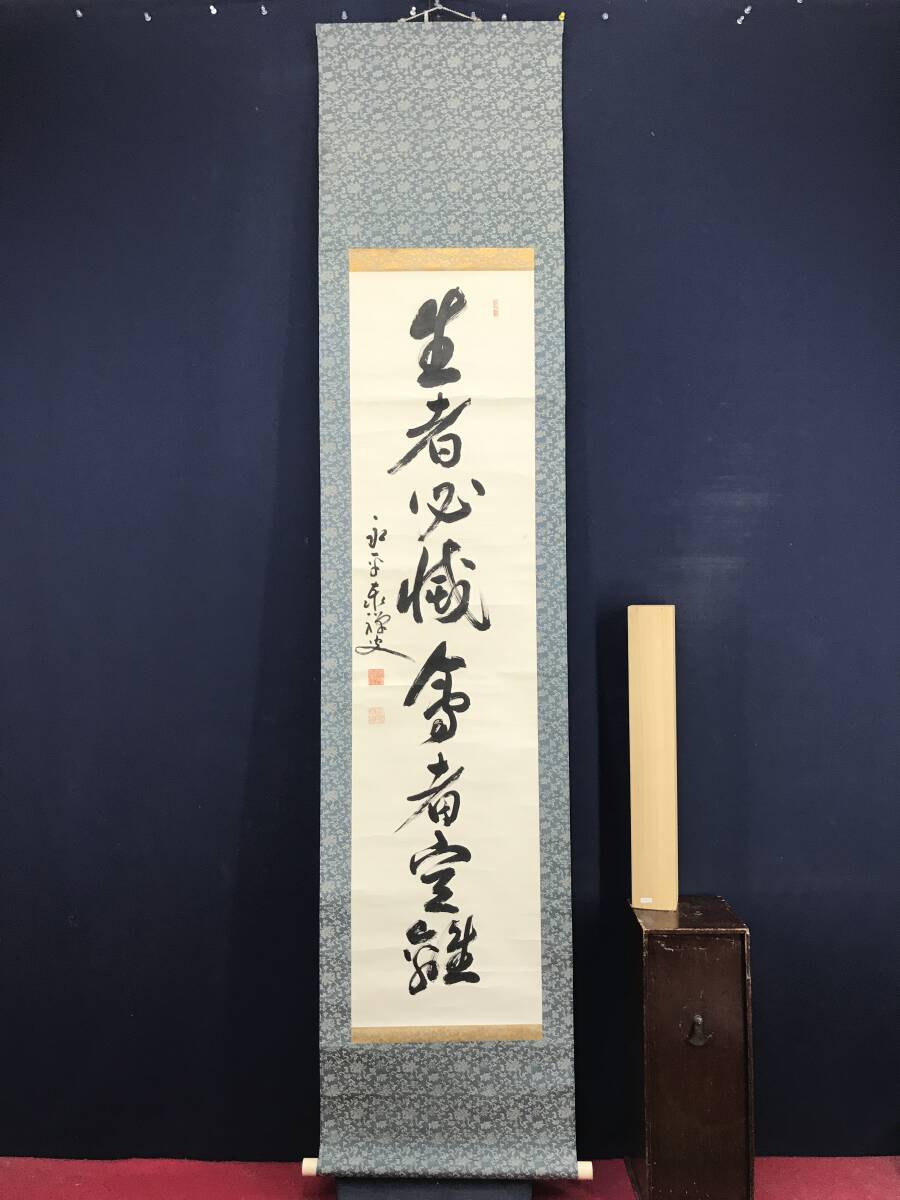 生者必滅會者定離
永平泰禅叟